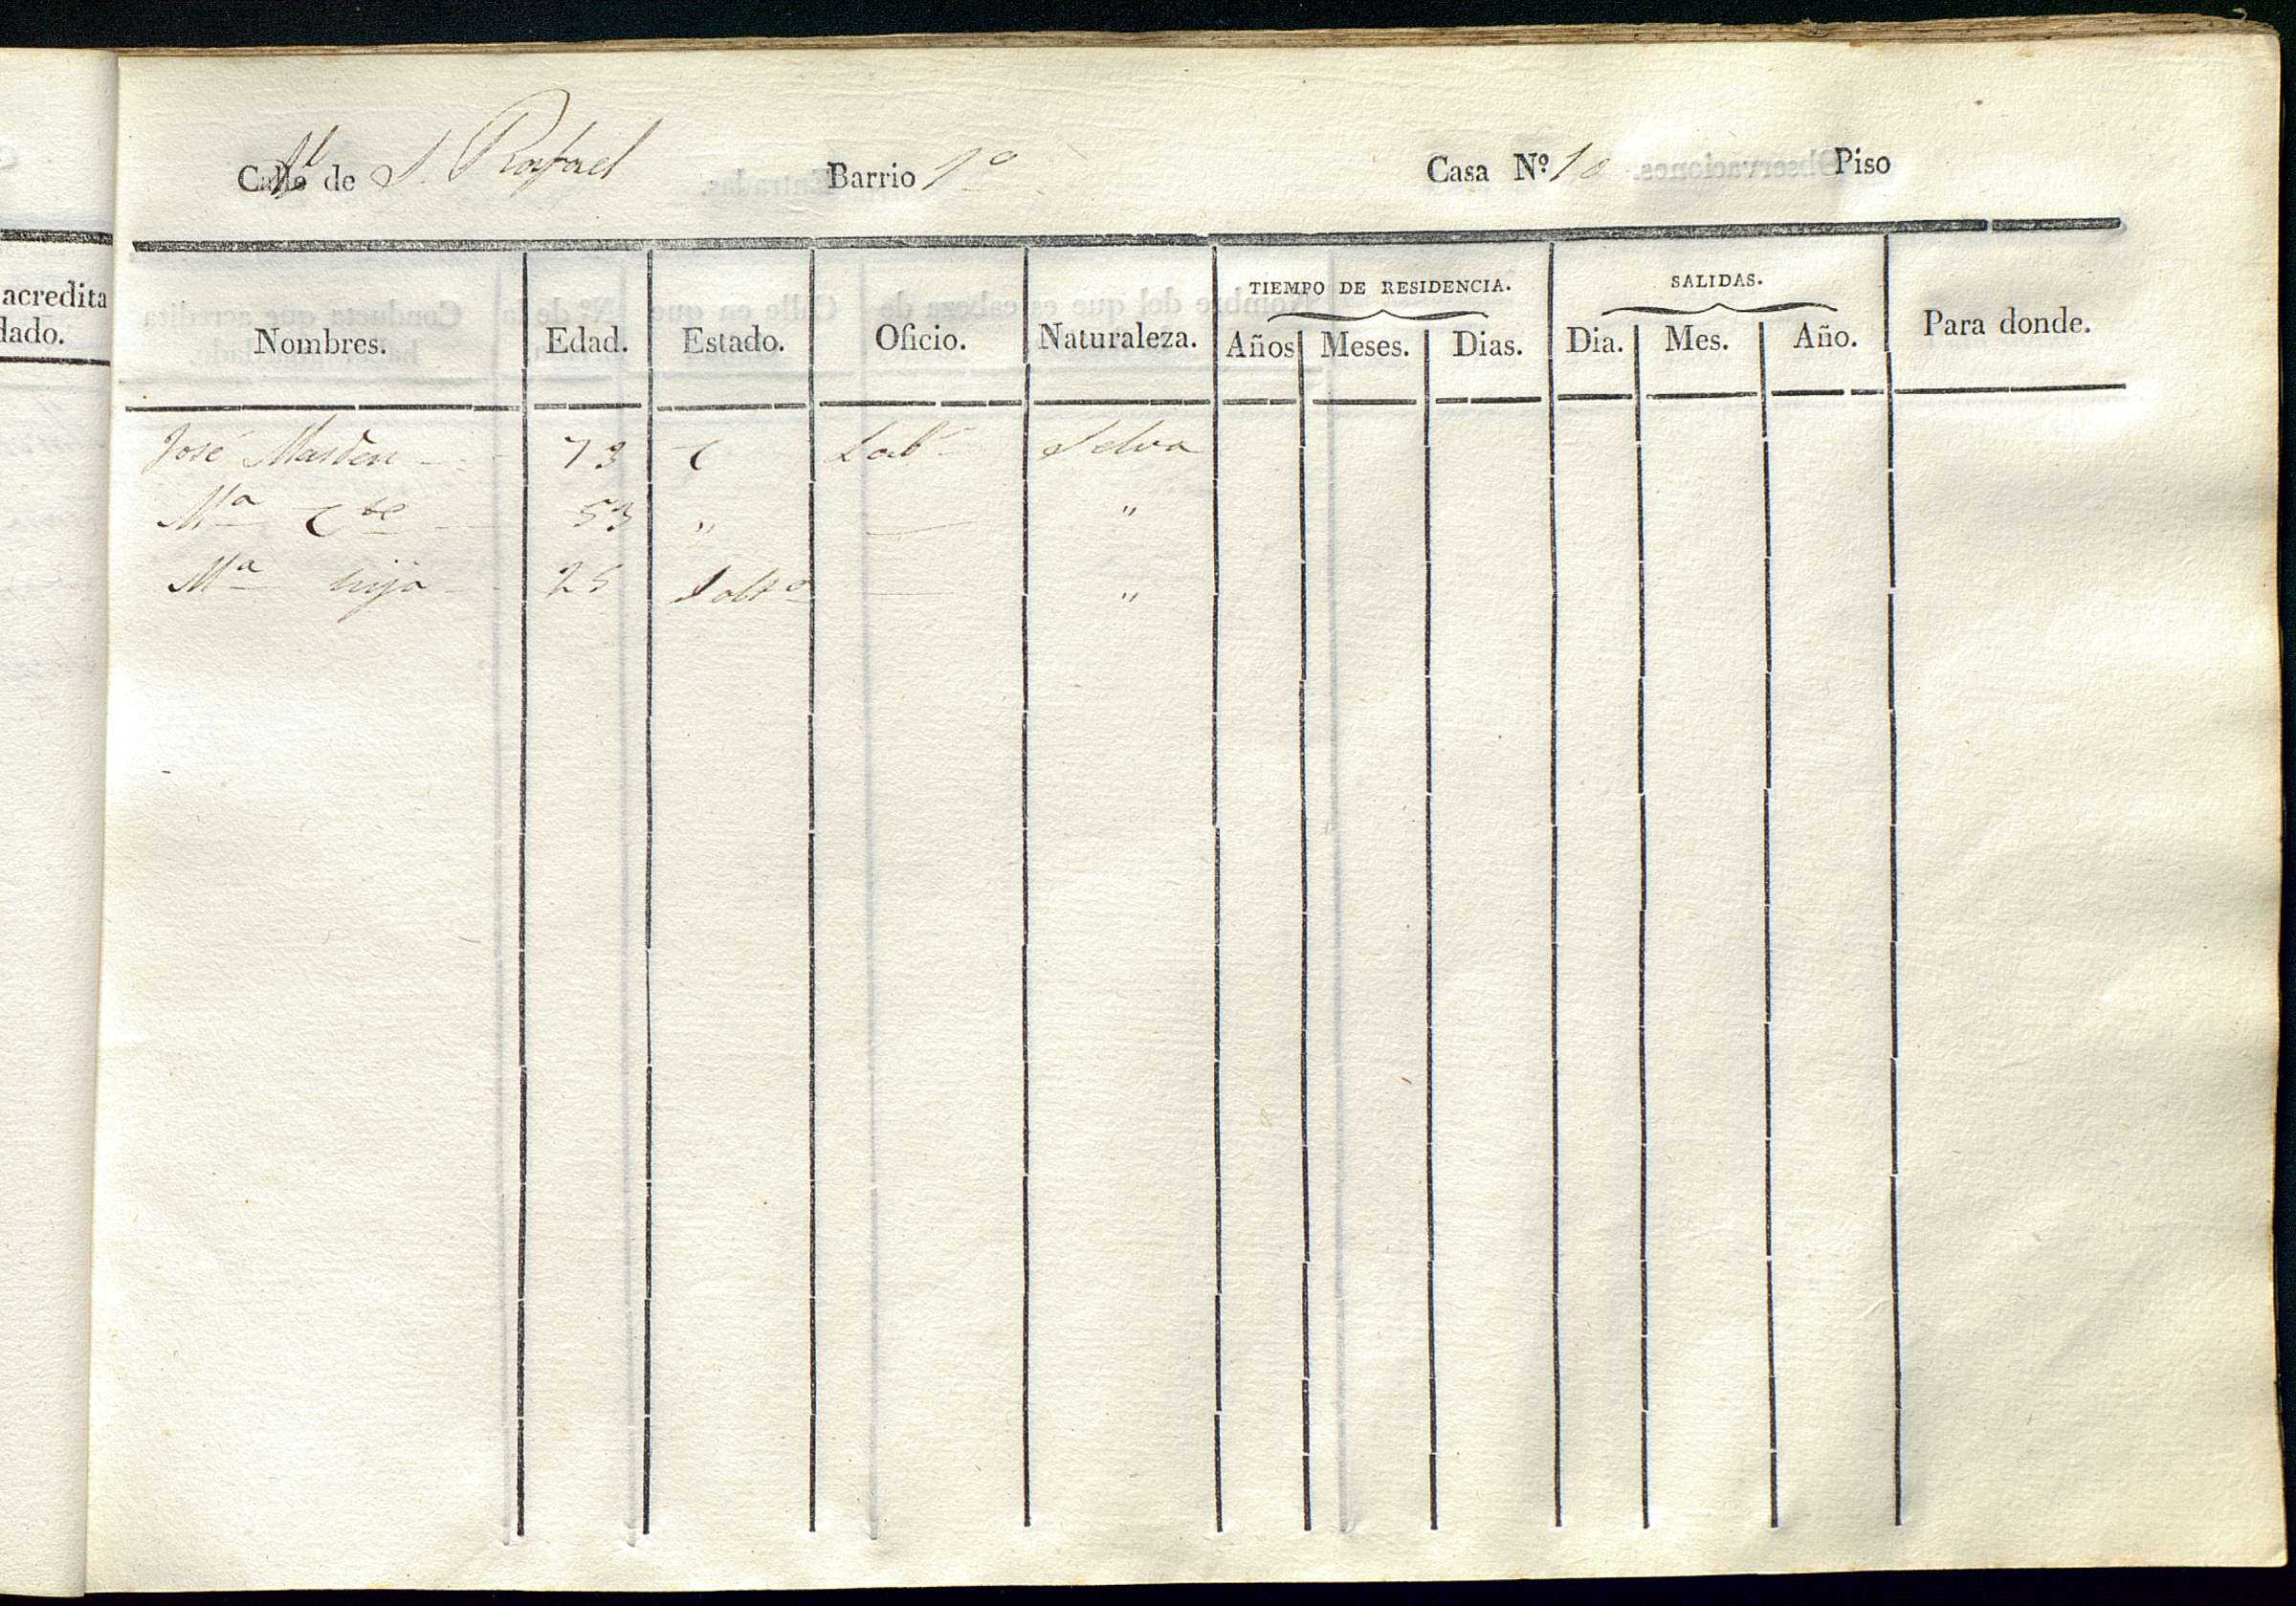 acredita
dado.
Calle de S. Rafael Barrio 1º Casa Nº 10 Piso
Nombres. Edad. Estado. Oficio. Naturaleza. TIEMPO DE RESIDENCIA. SALIDAS. Para donde.
Años Meses. Dias. Dia. Mes. Año.
José Masden 73 C Labr Selva
Mª Cte 53 " — "
Mª hija 25 Soltª — "